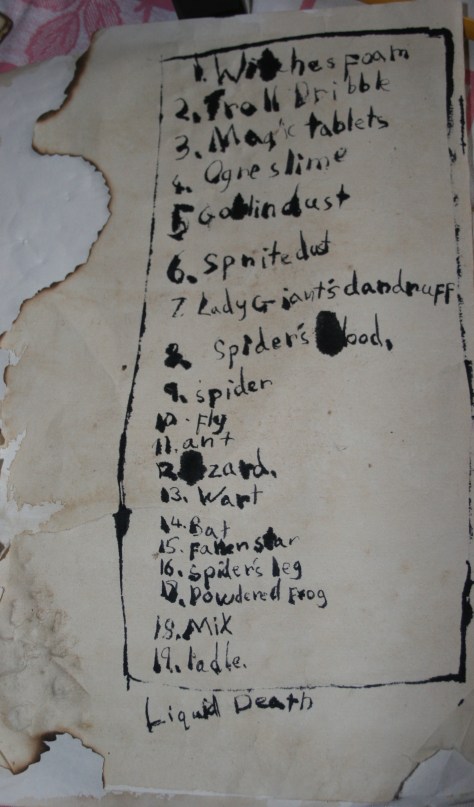 1. Witches foam
2. Troll Dribble
3. Magic tablets
4. Ogre slime
5 Goblin dust
6. Sprite dust
7. Lady Giant's dandruff
8. Spider's Blood.
9. spider
10. Fly
11. ant
12. Lizard.
13. Wart
14. Bat
15. Fallen star
16. Spider's leg
17. Powdered Frog
18. Mix
19. ladle.
Liquid Death